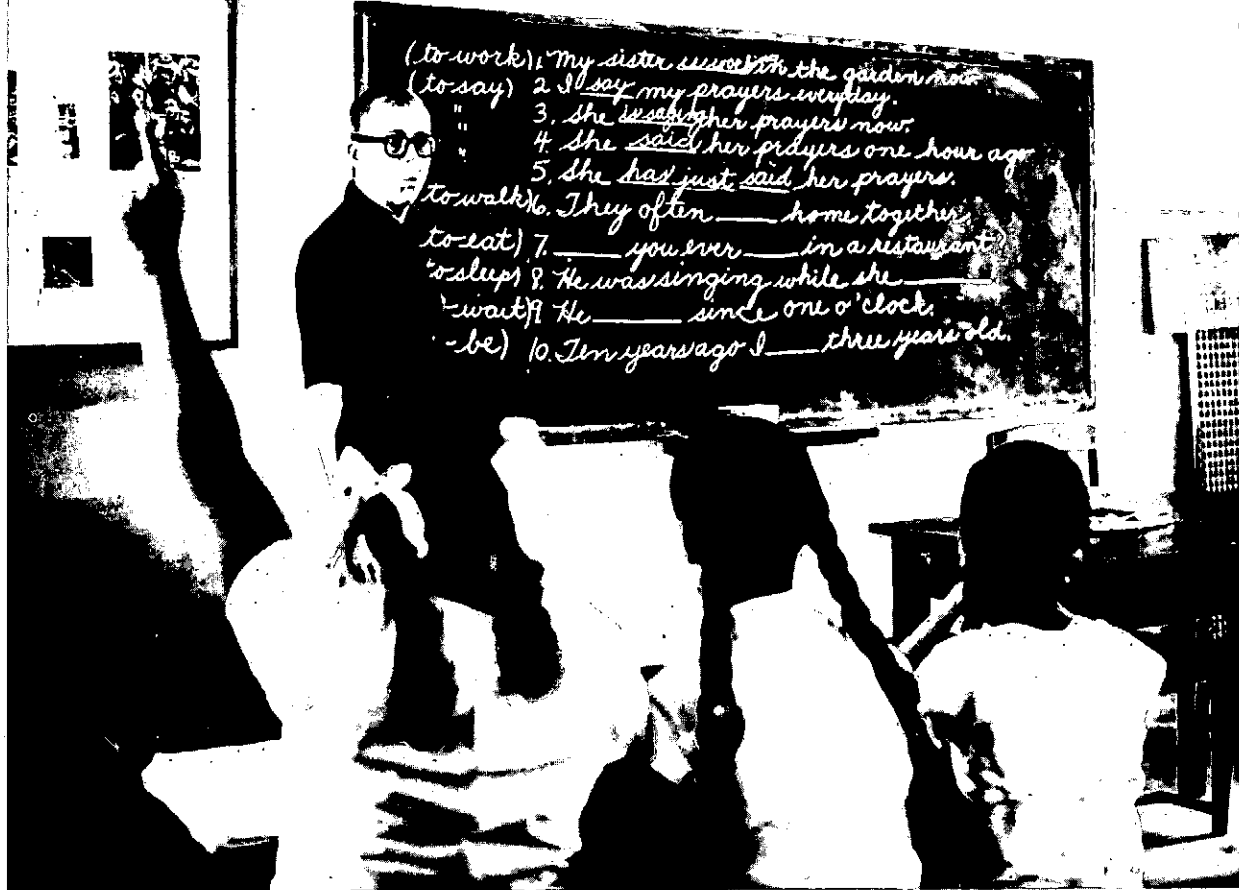 (to work) 1. My sister is working in the garden now.
(to say) 2 I say my prayers everyday.
" 3. She is saying her prayers now.
" 4. She said her prayers one hour ago
" 5. She has just said her prayers.
to walk) 6. They often ____ home together.
to eat) 7. ____ you ever ____ in a restaurant?
to sleep) 8. He was singing while she ____
wait) 9 He ____ since one o'clock.
-be) 10. Ten years ago I ____ three years old.